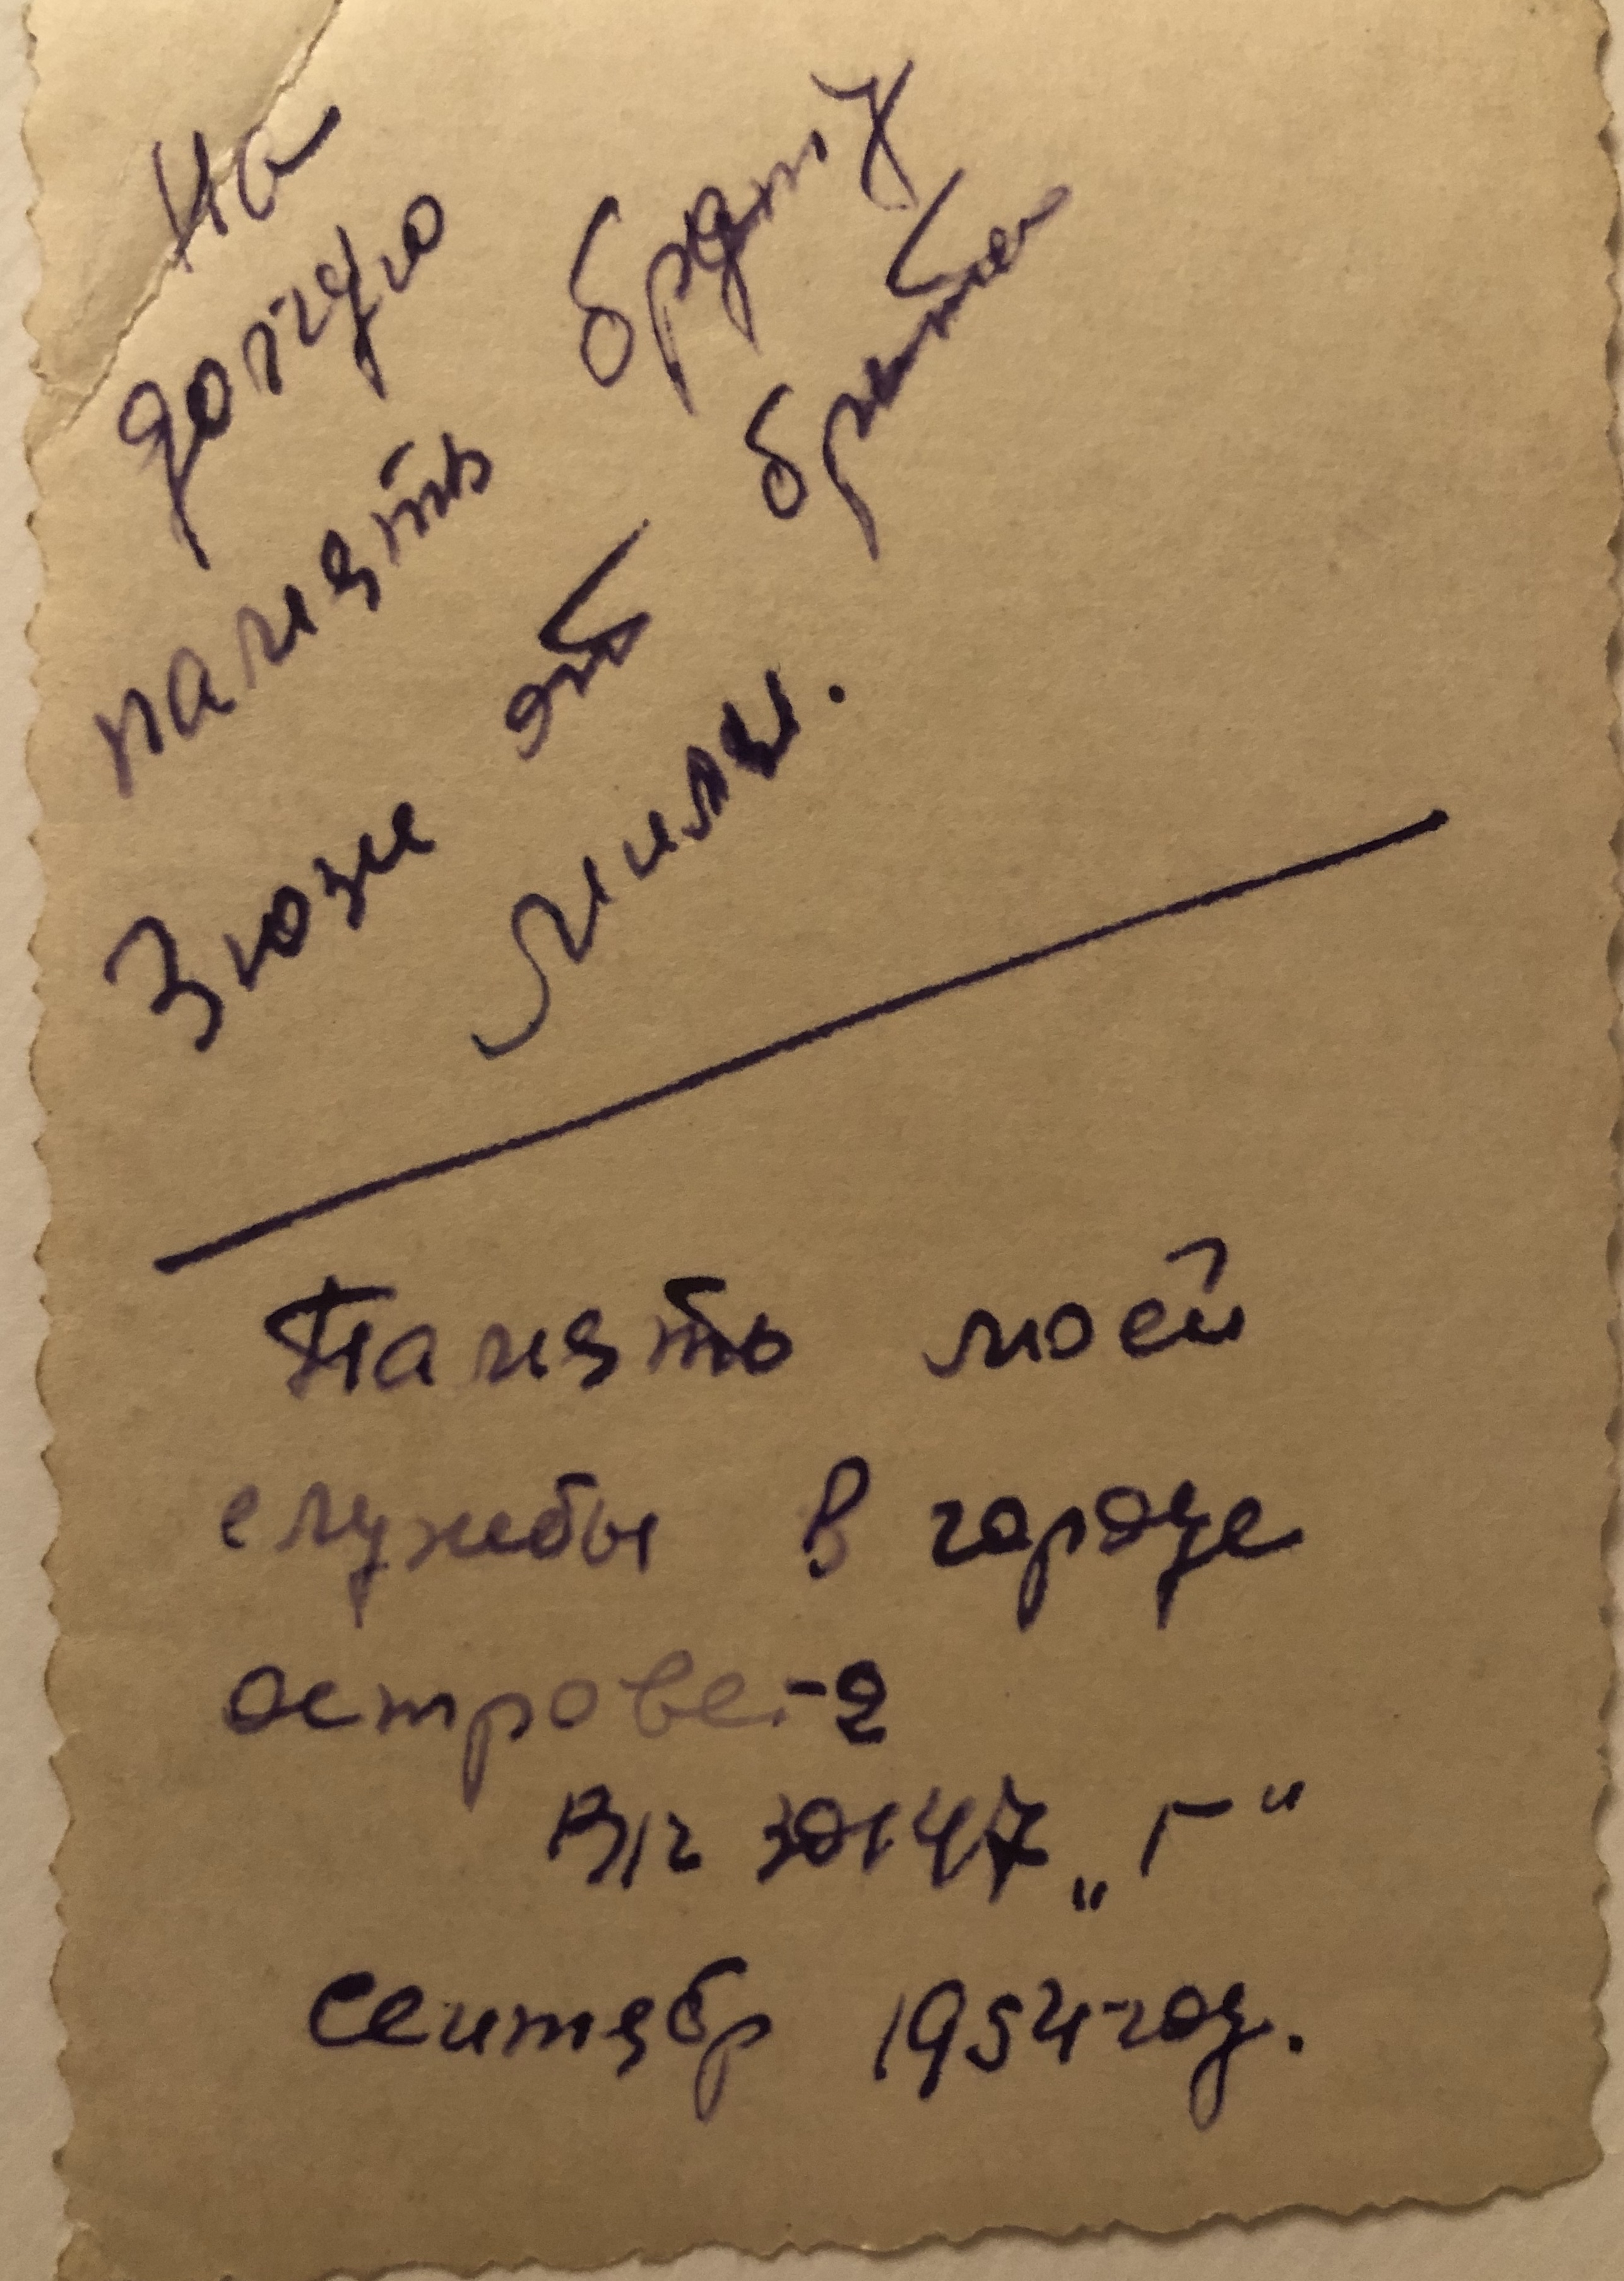 На
долгую
память брату
Зюзи от братья
Милы.
Память моей
службы в городе
острове-2
В/ч 30147 „Г“
сентябр 1954 год.